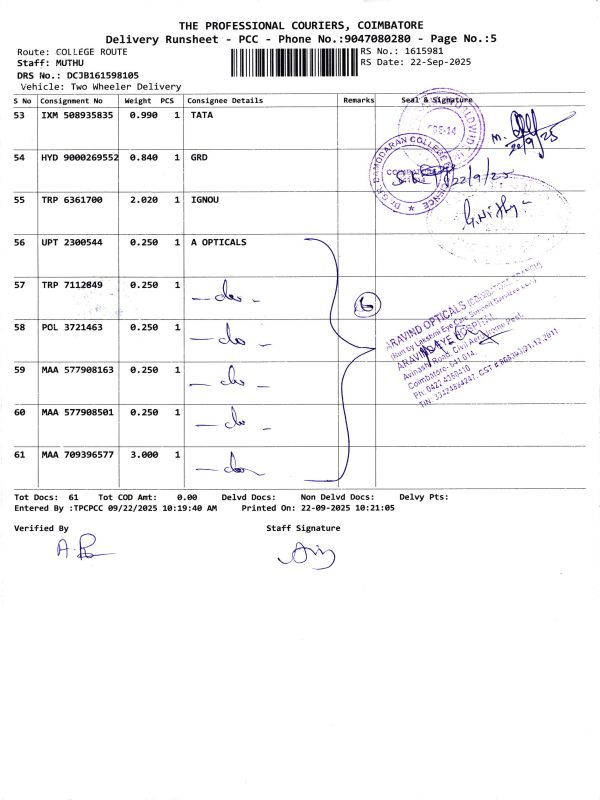 THE PROFESSIONAL COURIERS, COIMBATORE
Delivery Runsheet - PCC - Phone No.:9047080280 - Page No.:5
Route: COLLEGE ROUTE RS No.: 1615981
Staff: MUTHU RS Date: 22-Sep-2025
DRS No.: DCJB161598105
Vehicle: Two Wheeler Delivery
S No Consignment No Weight PCS Consignee Details Remarks Seal & Signature
53 IXM 508935835 0.990 1 TATA
22/9/25
54 HYD 9000269552 0.840 1 GRD
22/9/25
55 TRP 6361700 2.020 1 IGNOU
56 UPT 2300544 0.250 1 A OPTICALS
57 TRP 7112849 0.250 1 - do -
6
58 POL 3721463 0.250 1 - do -
59 MAA 577908163 0.250 1 - do -
60 MAA 577908501 0.250 1 - do -
61 MAA 709396577 3.000 1 - do -
ARAVIND OPTICALS
(Run by Lakshmi Eye Care Support Services
ARAVIND EYE HOSPITAL
Avinashi Road, Civil Aerodrome Post,
Coimbatore- 641 014.
Ph: 0422 4360410
Tot Docs: 61 Tot COD Amt: 0.00 Delvd Docs: Non Delvd Docs: Delvy Pts:
Entered By :TPCPCC 09/22/2025 10:19:40 AM Printed On: 22-09-2025 10:21:05
Verified By Staff Signature